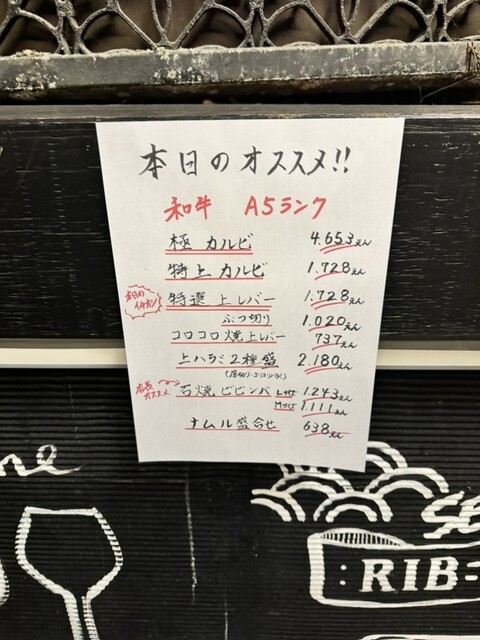 本日のオススメ!!
和牛 A5ランク
極 カルビ 4.653えん
特上 カルビ 1.728えん
本日のイチオシ 特選 上レバー 1.728えん
ぶつ切り 1.020えん
コロコロ焼上レバー 737えん
上ハラミ2種盛 2.180えん
店長オススメ 石焼ビビンバ Lサイズ 1.243えん
Mサイズ 1.111えん
ナムル盛合せ 638えん
ne
:RIB